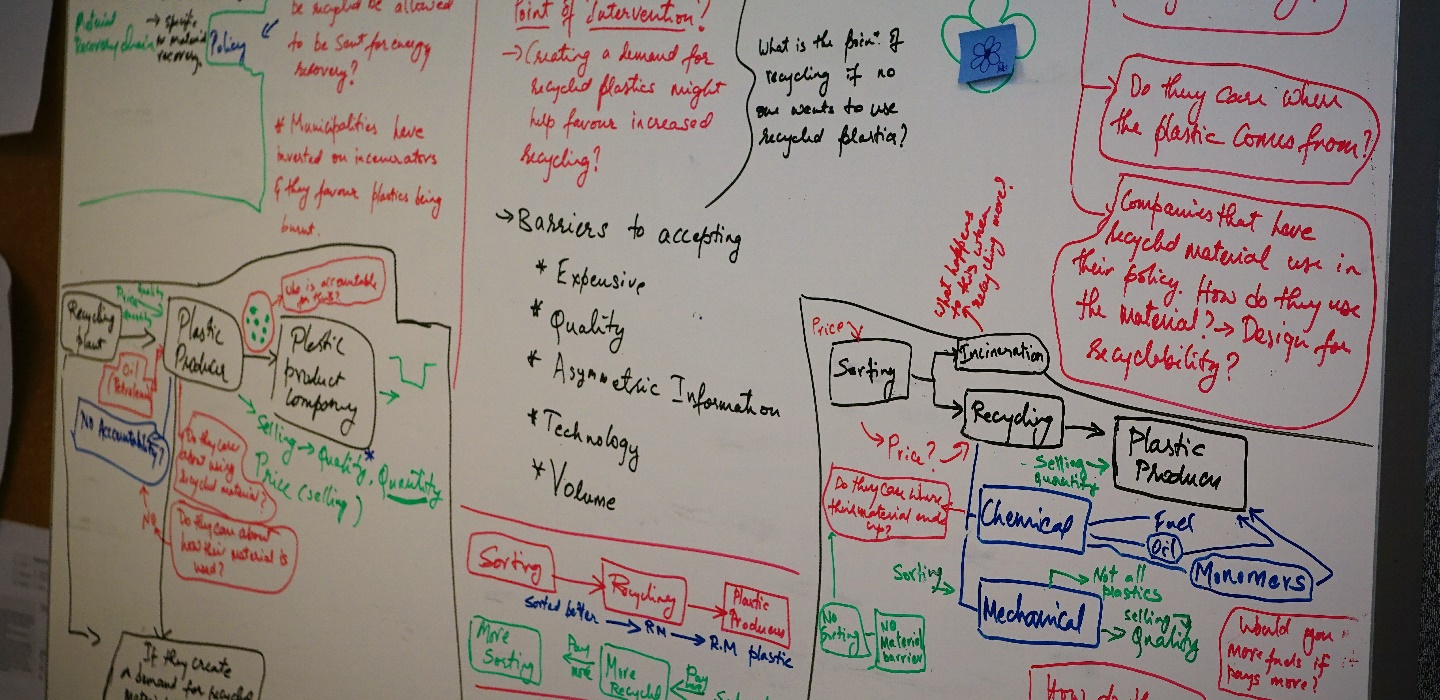 Recovery chain
→ specific
material
recovery
Policy
be recycled be allowed
to be sent for energy
recovery?
* Municipalities have
invested on incenerators
& they favour plastics being
burnt.
Point of Intervention?
→ Creating a demand for
recycled plastics might
help favour increased
recycling?
What is the point of
recycling if no
one wants to use
recycled plastics?
→ Barriers to accepting
* Expensive
* Quality
* Asymmetric Information
* Technology
* Volume
Do they care where
the plastic comes from?
Companies that have
recycled material use in
their policy. How do they use
the material? → Design for
recyclability?
Recycling
plant
Price
Quality
Quantity
Plastic
Producer
Who is accountable
for this?
Plastic
product
company
Oil
(Petroleum)
No Accountability?
Selling → Quality, Quantity
Price (selling)
Do they care
about using
recycled material?
No
Do they care about
how their material is
used?
If they create
a demand for recycled
Sorting
Recycling
Plastic
Producer
Sorted better → RM → R.M plastic
More
Sorting
Pay
more
More
Recycled
Pay
What happens
to this when
recycling more?
Price
Sorting
Incineration
Recycling
Plastic
Producer
Price?
Selling
quantity
Do they care where
their material ends
up?
Chemical
Fuel
Oil
Monomers
Sorting
Mechanical
Not all
plastics
selling
Quality
No
Sorting
No
Material
barrier
Would you
more fuels if
pays more?
How do the